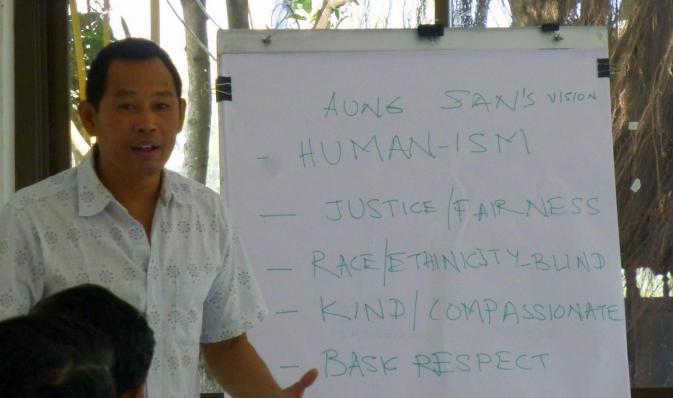 AUNG SAN'S VISION
- HUMAN-ISM
- JUSTICE/FAIRNESS
- RACE/ETHINICITY-BLIND
- KIND/COMPASSIONATE
- BASIC RESPECT